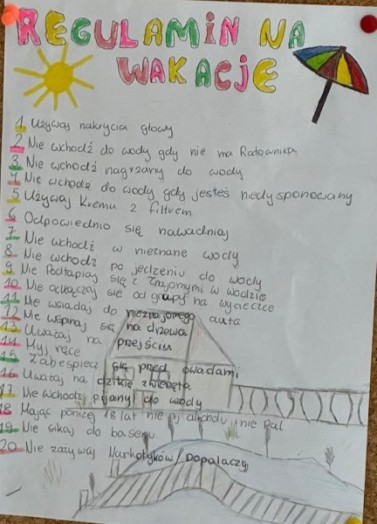 REGULAMIN NA
WAKACJE
1 Używaj nakrycia głowy
2 Nie wchodź do wody gdy nie ma Ratownika
3 Nie wchodź nagrzany do wody
4 Nie wchodź do wody gdy jesteś niedysponowany
5 Używaj kremu z filtrem
6 Odpowiednio się nawadniaj
7 Nie wchodź w nieznane wody
8 Nie wchodź po jedzeniu do wody
9 Nie Podtapiaj się z znajomymi w wodzie
10 Nie odłączaj się od grupy na wycieczce
11 Nie wsiadaj do nieznajomego auta
12 Nie wspinaj się na drzewa
13 Uważaj na przejściu
14 Myj ręce
15 Zabespiecz się przed owadami
16 Uważaj na dzikie zwierzęta
17 Nie wchodź pijany do wody
18 Mając poniżej 18 lat nie pij alkoholu i nie pal
19 Nie sikaj do basenu
20 Nie zażywaj Narkotyków / Dopalaczy